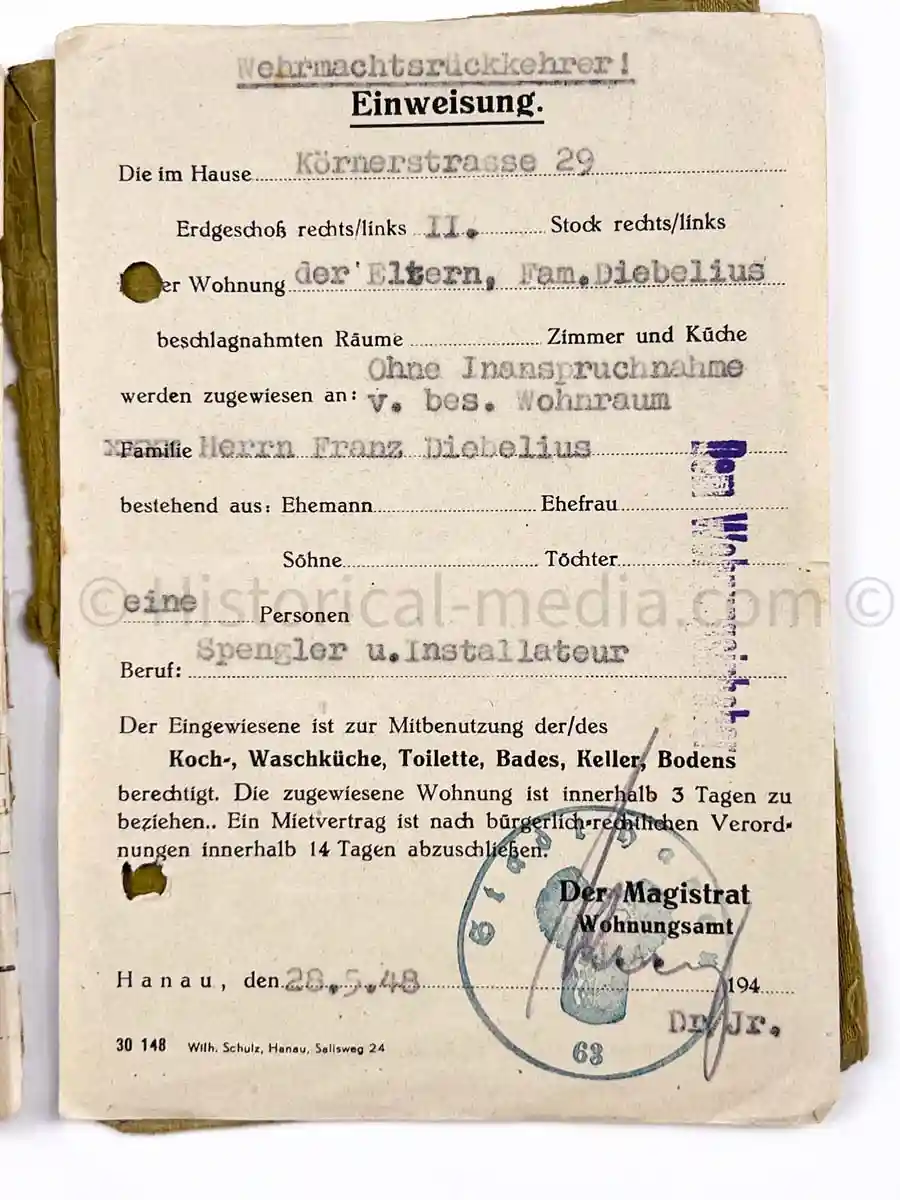 Wehrmachtsrückkehrer!
Einweisung.
Die im Hause Körnerstrasse 29
Erdgeschoß rechts/links II. Stock rechts/links
er Wohnung der Eltern, Fam. Diebelius
beschlagnahmten Räume Zimmer und Küche
Ohne Inanspruchnahme
werden zugewiesen an: v. bes. Wohnraum
Familie Herrn Franz Diebelius
bestehend aus: Ehemann Ehefrau
Söhne Töchter
eine Personen
© Historical-media.com ©
Beruf: Spengler u. Installateur
Der Eingewiesene ist zur Mitbenutzung der/des
Koch-, Waschküche, Toilette, Bades, Keller, Bodens
berechtigt. Die zugewiesene Wohnung ist innerhalb 3 Tagen zu
beziehen.. Ein Mietvertrag ist nach bürgerlich-rechtlichen Verord-
nungen innerhalb 14 Tagen abzuschließen.
Der Magistrat
Wohnungsamt
Hanau, den 28.5.48 194
Dr/Jr.
30 148 Wilh. Schulz, Hanau, Sallsweg 24
Dem
Stadt
63